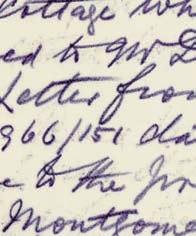 Cottage wh
ed to Mr D
Letter from
966/151 da
e to the
Montgome